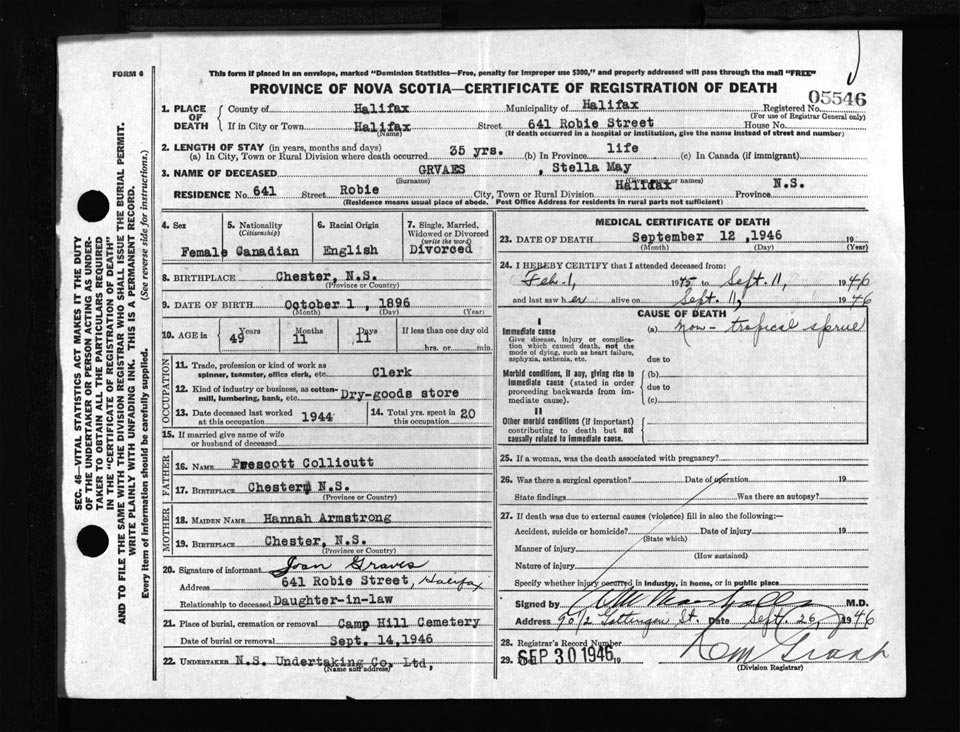 FORM 6
This form if placed in an envelope, marked "Dominion Statistics—Free, penalty for improper use $300," and properly addressed will pass through the mail "FREE"
PROVINCE OF NOVA SCOTIA—CERTIFICATE OF REGISTRATION OF DEATH
05546
1. PLACE OF DEATH
County of Halifax Municipality of Halifax Registered No.
(For use of Registrar General only)
If in City or Town Halifax Street 641 Robie Street House No.
(Name) (If death occurred in a hospital or institution, give the name instead of street and number)
2. LENGTH OF STAY (in years, months and days)
(a) In City, Town or Rural Division where death occurred 35 yrs. (b) In Province life (c) In Canada (if immigrant)
3. NAME OF DECEASED GRVAES , Stella May
(Surname) (Given name or names)
RESIDENCE No. 641 Street Robie City, Town or Rural Division Halifax Province N.S.
(Residence means usual place of abode. Post Office Address for residents in rural parts not sufficient)
4. Sex
Female
5. Nationality
(Citizenship)
Canadian
6. Racial Origin
English
7. Single, Married, Widowed or Divorced
(write the word)
Divorced
8. BIRTHPLACE Chester, N.S.
(Province or Country)
9. DATE OF BIRTH October 1, 1896
(Month) (Day) (Year)
10. AGE in Years Months Days If less than one day old
49 11 11 hrs. or min.
OCCUPATION
11. Trade, profession or kind of work as
spinner, teamster, office clerk, etc. Clerk
12. Kind of industry or business, as cotton-
mill, lumbering, bank, etc. Dry-goods store
13. Date deceased last worked
at this occupation 1944
14. Total yrs. spent in
this occupation 20
15. If married give name of wife
or husband of deceased
FATHER
16. NAME Prescott Collicutt
17. BIRTHPLACE Chester, N.S.
(Province or Country)
MOTHER
18. MAIDEN NAME Hannah Armstrong
19. BIRTHPLACE Chester, N.S.
(Province or Country)
20. Signature of informant Joan Graves
Address 641 Robie Street, Halifax
Relationship to deceased Daughter-in-law
21. Place of burial, cremation or removal Camp Hill Cemetery
Date of burial or removal Sept. 14,1946
22. UNDERTAKER N.S. Undertaking Co. Ltd,
(Name and address)
MEDICAL CERTIFICATE OF DEATH
23. DATE OF DEATH September 12 ,1946 19
(Month) (Day) (Year)
24. I HEREBY CERTIFY that I attended deceased from:
Feb. 1, 1945 to Sept. 11, 1946
and last saw her alive on Sept. 11, 1946
CAUSE OF DEATH
I
Immediate cause
Give disease, injury or complica-
tion which caused death, not the
mode of dying, such as heart failure,
asphyxia, asthenia, etc.
(a) non-tropical sprue
due to
Morbid conditions, if any, giving rise to
immediate cause (stated in order
proceeding backwards from im-
mediate cause).
(b)
due to
(c)
II
Other morbid conditions (if important)
contributing to death but not
causally related to immediate cause.
25. If a woman, was the death associated with pregnancy?
26. Was there a surgical operation? Date of operation 19
State findings Was there an autopsy?
27. If death was due to external causes (violence) fill in also the following:—
Accident, suicide or homicide? Date of injury 19
(State which)
Manner of injury
(How sustained)
Nature of injury
Specify whether injury occurred in industry, in home, or in public place
Signed by M.D.
Address 90 1/2 Gottingen St. Date Sept. 26, 1946
28. Registrar's Record Number
29. SEP 30 1946 19
(Division Registrar)
SEC. 46—VITAL STATISTICS ACT MAKES IT THE DUTY
OF THE UNDERTAKER OR PERSON ACTING AS UNDER-
TAKER TO OBTAIN ALL THE PARTICULARS REQUIRED
IN THE "CERTIFICATE OF REGISTRATION OF DEATH"
AND TO FILE THE SAME WITH THE DIVISION REGISTRAR WHO SHALL ISSUE THE BURIAL PERMIT.
WRITE PLAINLY WITH UNFADING INK. THIS IS A PERMANENT RECORD.
Every item of information should be carefully supplied. (See reverse side for instructions.)